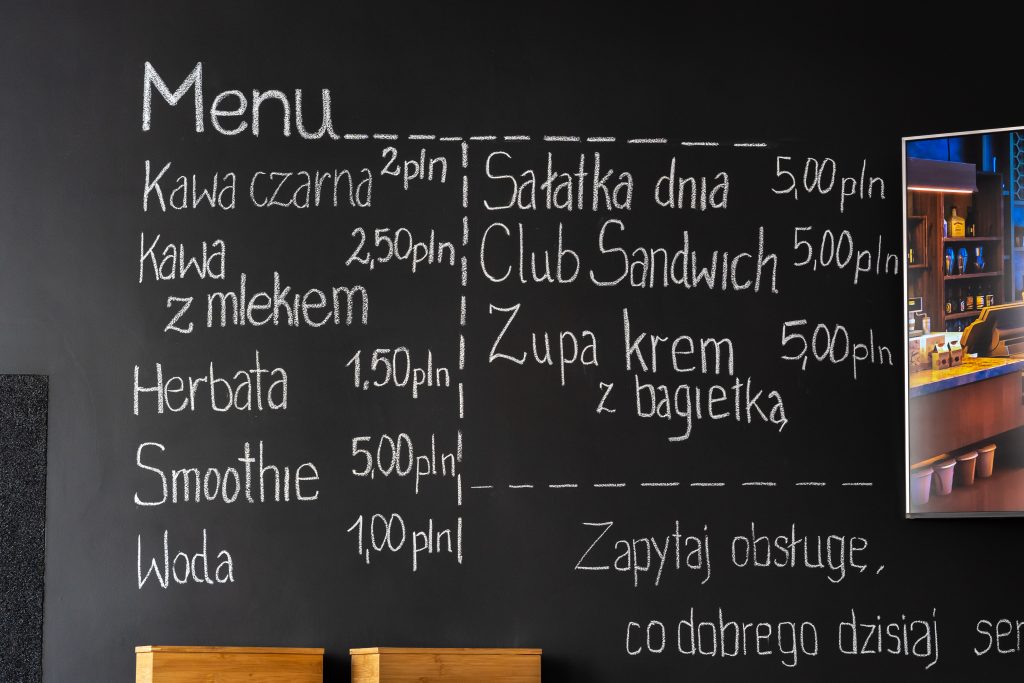 Menu
Kawa czarna 2pln
Kawa 2,50pln
z mlekiem
Herbata 1.50pln
Smoothie 5,00pln
Woda 1,00pln
Sałatka dnia 5,00pln
Club Sandwich 5,00pln
Zupa krem 5,00pln
z bagietką
Zapytaj obsługę,
co dobrego dzisiaj